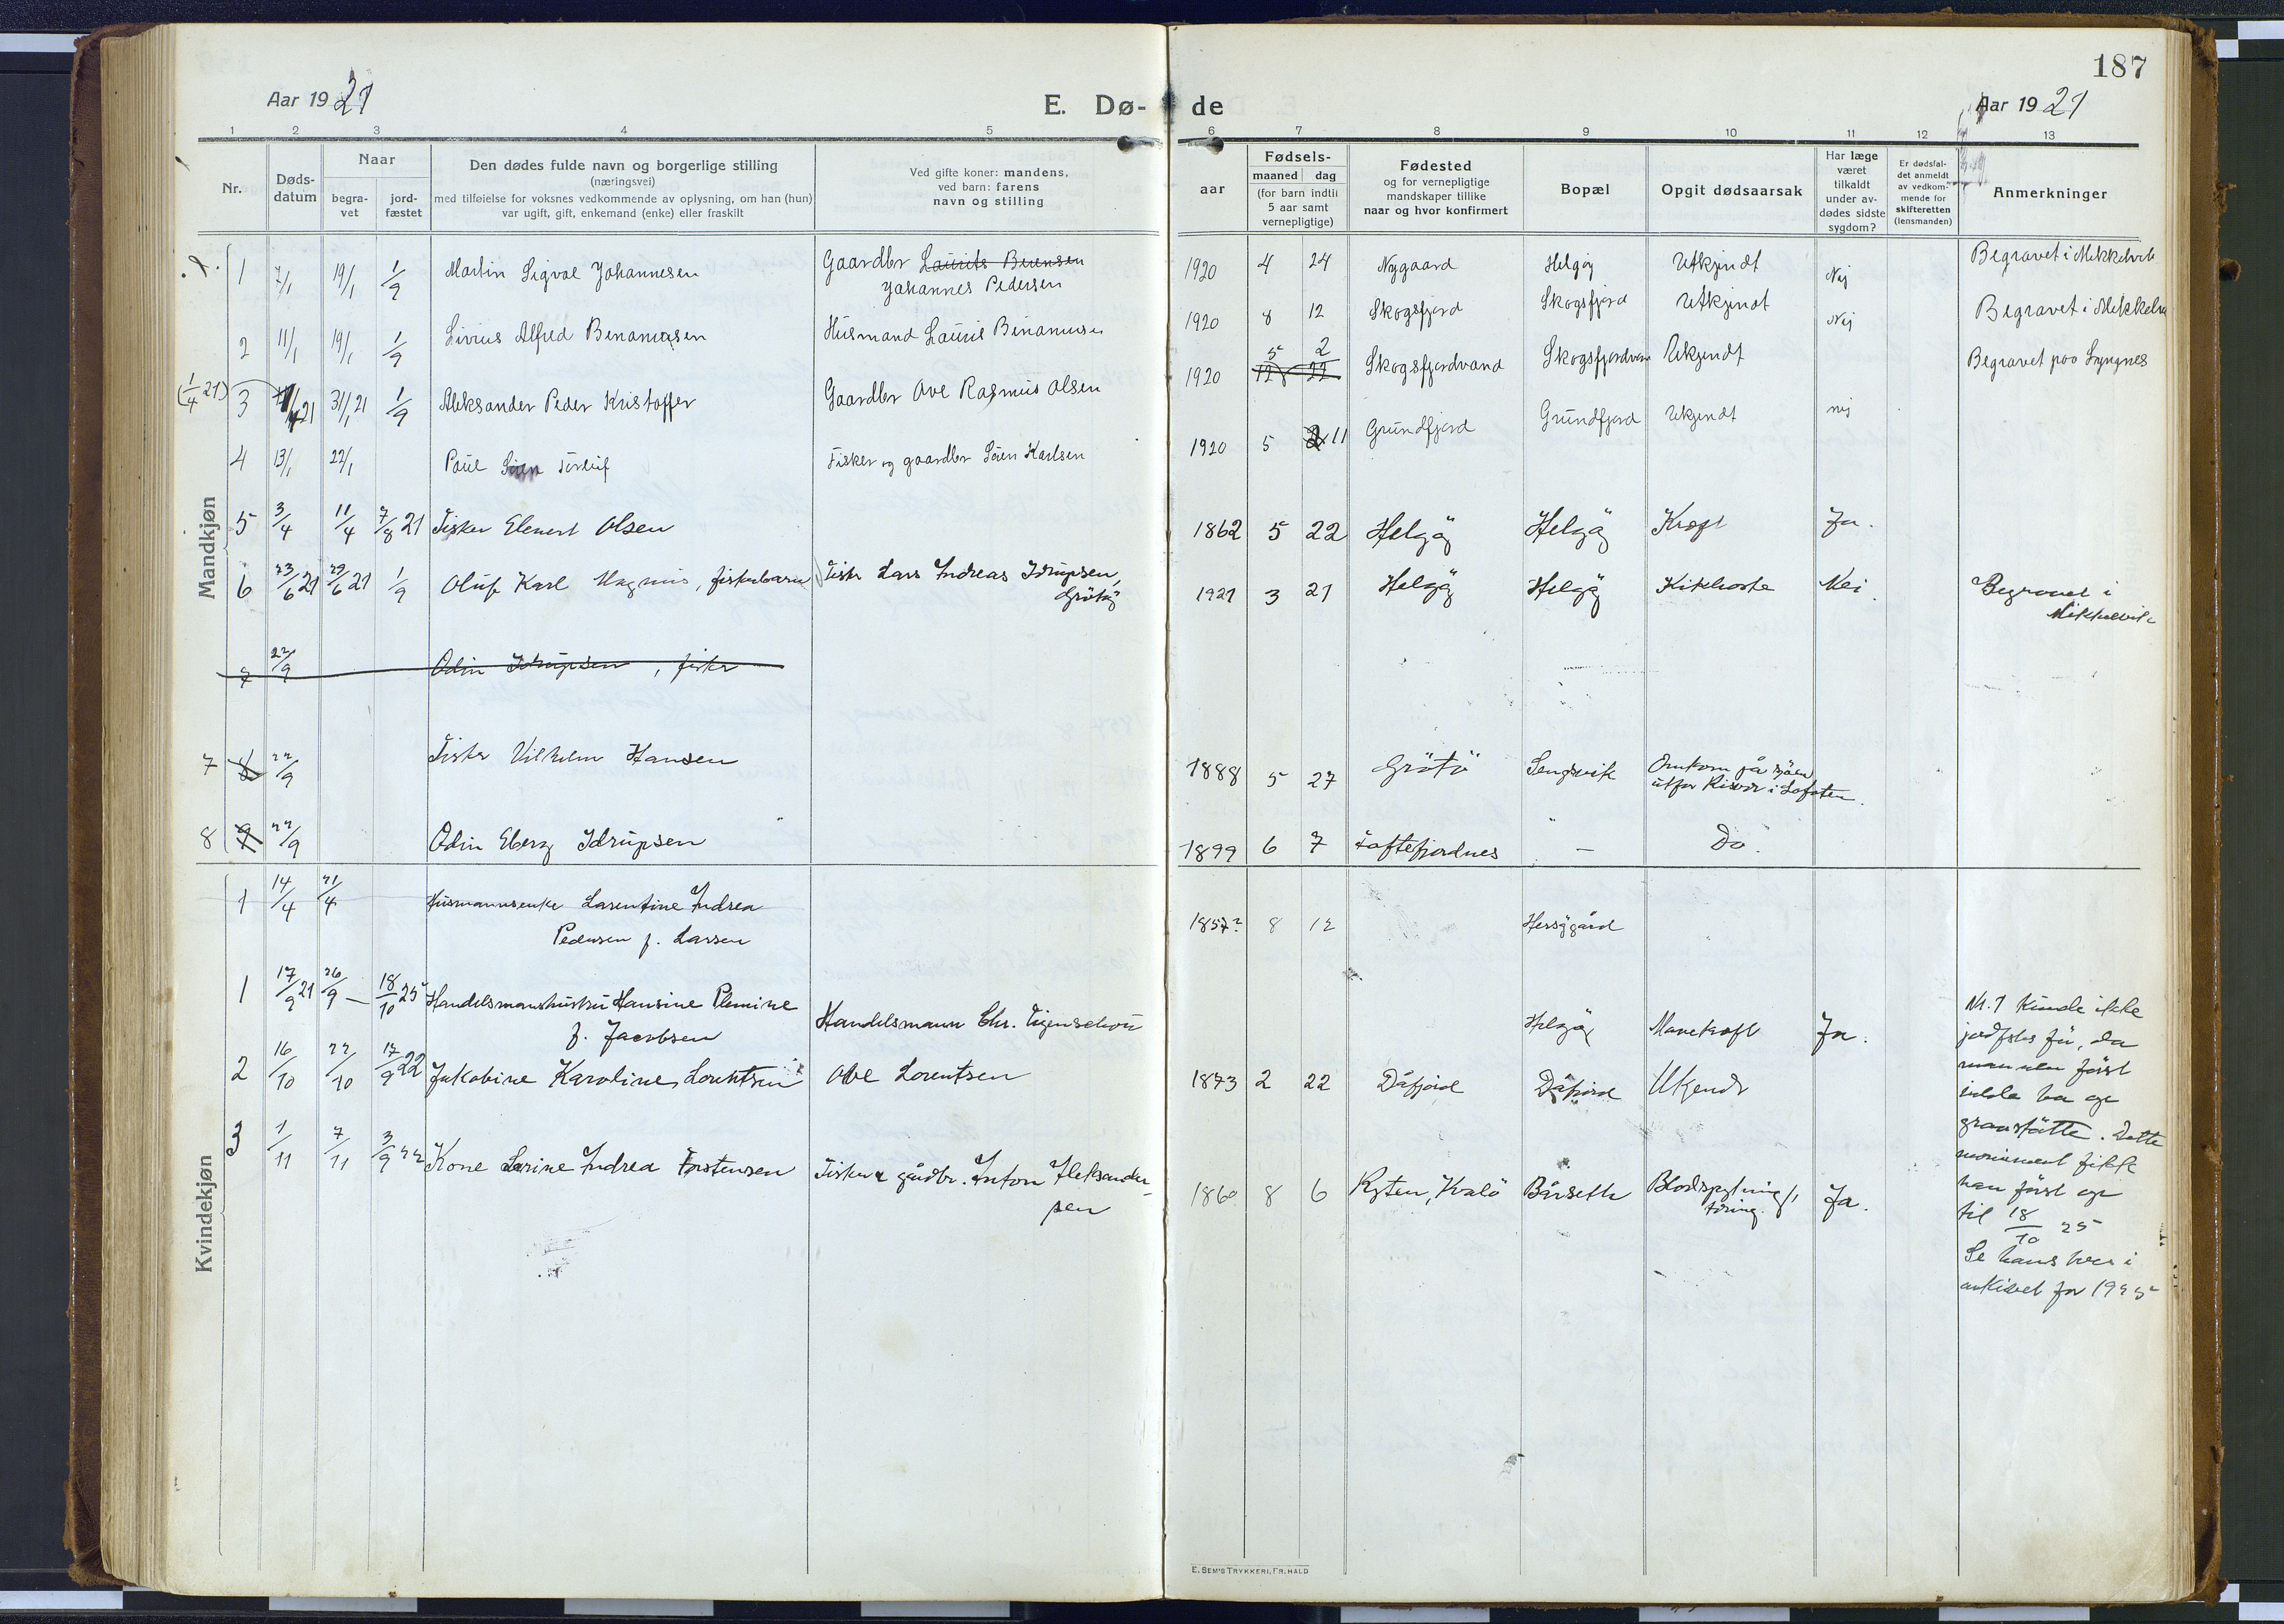 187
Aar 1921
E. Dø-
de
Aar 1921
1 2 3 4 5 6 7 8 9 10 11 12 13
Nr.
Døds-
datum
Naar
begra-
vet
jord-
fæstet
Den dødes fulde navn og borgerlige stilling
(næringsvei)
med tilføielse for voksnes vedkommende av oplysning, om han (hun)
var ugift, gift, enkemand (enke) eller fraskilt
Ved gifte koner: mandens,
ved barn: farens
navn og stilling
aar
Fødsels-
maaned dag
(for barn indtil
5 aar samt
vernepligtige)
Fødested
og for vernepligtige
mandskaper tillike
naar og hvor konfirmert
Bopæl
Opgit dødsaarsak
Har læge
været
tilkaldt
under av-
dødes sidste
sygdom?
Er dødsfal-
det anmeldt
av vedkom-
mende for
skifteretten
(lensmanden)
Anmerkninger
Mandkjøn
1 7/1 19/1 1/9 Martin Sigval Johannesen Gaardbr Laurits Berensen
Johannes Pedersen
1920 4 24 Nygaard Helgøy Utkjendt Nej Begravet i Mekkelvik
2 11/1 19/1 1/9 Livius Alfred Benamusen Husmand Lauris Benamusen
1920 8 12 Skogsfjord Skogsfjord Utkjendt Nej Begravet i Mekkelv
(1/4 21) 3 21 31/1 21 1/9 Aleksander Peder Kristoffer Gaardbr Ove Rasmus Olsen
5 2
1920 12 22 Skogsfjordvand Skogsfjordvan Ukjendt Begravet paa Lyngnes
4 13/1 22/1 Paul Søren Torleif Fisker og gaardbr Søren Karlsen
1920 5 2 11 Grundfjord Grundfjord Ukjendt nej
5 3/4 11/4 7/8 21 Fisker Elenert Olsen
1862 5 22 Helgøy Helgøy Kræft Ja.
6 23/6 21 29/6 21 1/9 Oluf Karl Magnus, fiskerbarn Fisker Lars Andreas Idrupsen,
Grøtøy
1921 3 21 Helgøy Helgøy Kikhoste Nei. Begravet i
Mikkelvik
7 22/9 Odin Idrupsen, fisker
7 8 22/9 Fisker Vilhelm Hansen
1888 5 27 Grøtö Lengsvik Omkom på sjøen
utfor Risvær i Lofoten.
8 9 22/9 Odin Eberg Idrupsen
1899 6 7 Toftefjordnes — Do.
Kvindekjøn
1 14/4 21/4 Husmannsenke Larentine Andrea
Pedersen f. Larsen
1857? 8 12 Hersøygård
1 17/9 21 26/9 — 18/10 25 Handelsmanshustru Hansine Plemine
f. Jacobsen
Handelsmann Chr. Figenschou
Helgøy Mavekræft Ja.
Nr. 1 kunde ikke
jordfstes før, da
mannen først
vilde ha op
gravstøtte. Dette
monument fikk
han først op
til 18/10 25
Se hans brev i
arkivet for 1925
2 16/10 22/10 17/9 22 Jakobine Karoline Lorentsen Ove Lorentsen
1873 2 22 Dåfjord Dåfjord Ukjendt
3 1/11 7/11 3/9 22 Kone Larine Andrea Torstensen Fisker & gårdbr. Anton Aleksander-
sen
1860 8 6 Ryten, Kvalö Bårseth Blodspytning,
tæring. Ja.
E. SEM'S TRYKKERI, FR.HALD